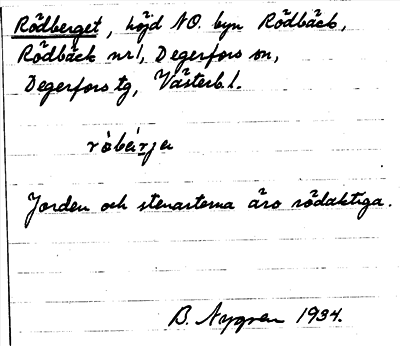 Rödberget, höjd NO. byn Rödbäck,
Rödbäck nr 1, Degerfors sn,
Degerfors tg, Västerb. l.
Jorden och stenarterna äro rödaktiga.
B. Nygren 1934.